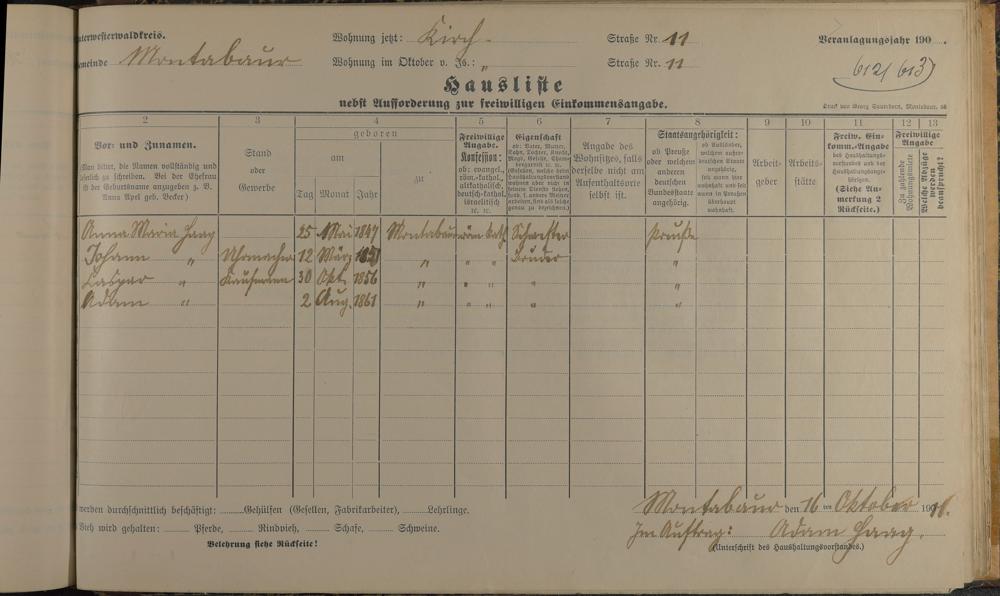 nterwesterwaldkreis.
Wohnung jetzt: Kirch-
Straße Nr. 11
Veranlagungsjahr 190 .
emeinde Montabaur
Wohnung im Oktober v. Js.: "
Straße Nr. 11
612/613
Hausliste
nebst Aufforderung zur freiwilligen Einkommensangabe.
Druck von Georg Sauerborn, Montabaur.
2 3 4 5 6 7 8 9 10 11 12 13
Vor- und Zunamen.
(Man bittet, die Namen vollständig und
deutlich zu schreiben. Bei der Ehefrau
ist der Geburtsname anzugeben z. B.
Anna Apel geb. Becker)
Stand
oder
Gewerbe
geboren
am
Tag Monat Jahr
zu
Freiwillige
Angabe.
Konfession:
ob: evangel.,
röm.-kathol.,
altkatholisch,
deutsch-kathol.
israelitisch
ec. ec.
Eigenschaft
ob: Vater, Mutter,
Sohn, Tochter, Knecht,
Magd, Geselle,
Angabe des
Wohnsitzes, falls
derselbe nicht am
Aufenthaltsorte
selbst ist.
Staatsangehörigkeit:
ob Preuße
oder welchem
anderen
deutschen
Bundesstaate
angehörig.
ob Ausländer,
Arbeit-
geber
Arbeits-
stätte
Freiw. Ein-
komm.-Angabe
des Haushaltungs-
vorstandes und der
Haushaltungsange-
hörigen.
(Siehe An-
merkung 2
Rückseite.)
Freiwillige
Angabe
Zu zahlende
Wohnungsmiete
Welche Abzüge
werden
beansprucht?
Anna Maria Haag 25 Mai 1847 Montabaur röm. kath. Schwester Preuße
Johann " Uhrmacher 12 März " " " Bruder "
Caspar " Kaufmann 30 Okt. 1856 " " " " "
Adam " 2 Aug. 1861 " " " " "
werden durchschnittlich beschäftigt: Gehülfen (Gesellen, Fabrikarbeiter), Lehrlinge.
Vieh wird gehalten: Pferde, Rindvieh, Schafe, Schweine.
Belehrung siehe Rückseite!
Montabaur den 16 ten Oktober 19
Im Auftrag: Adam Haag.
(Unterschrift des Haushaltungsvorstandes.)